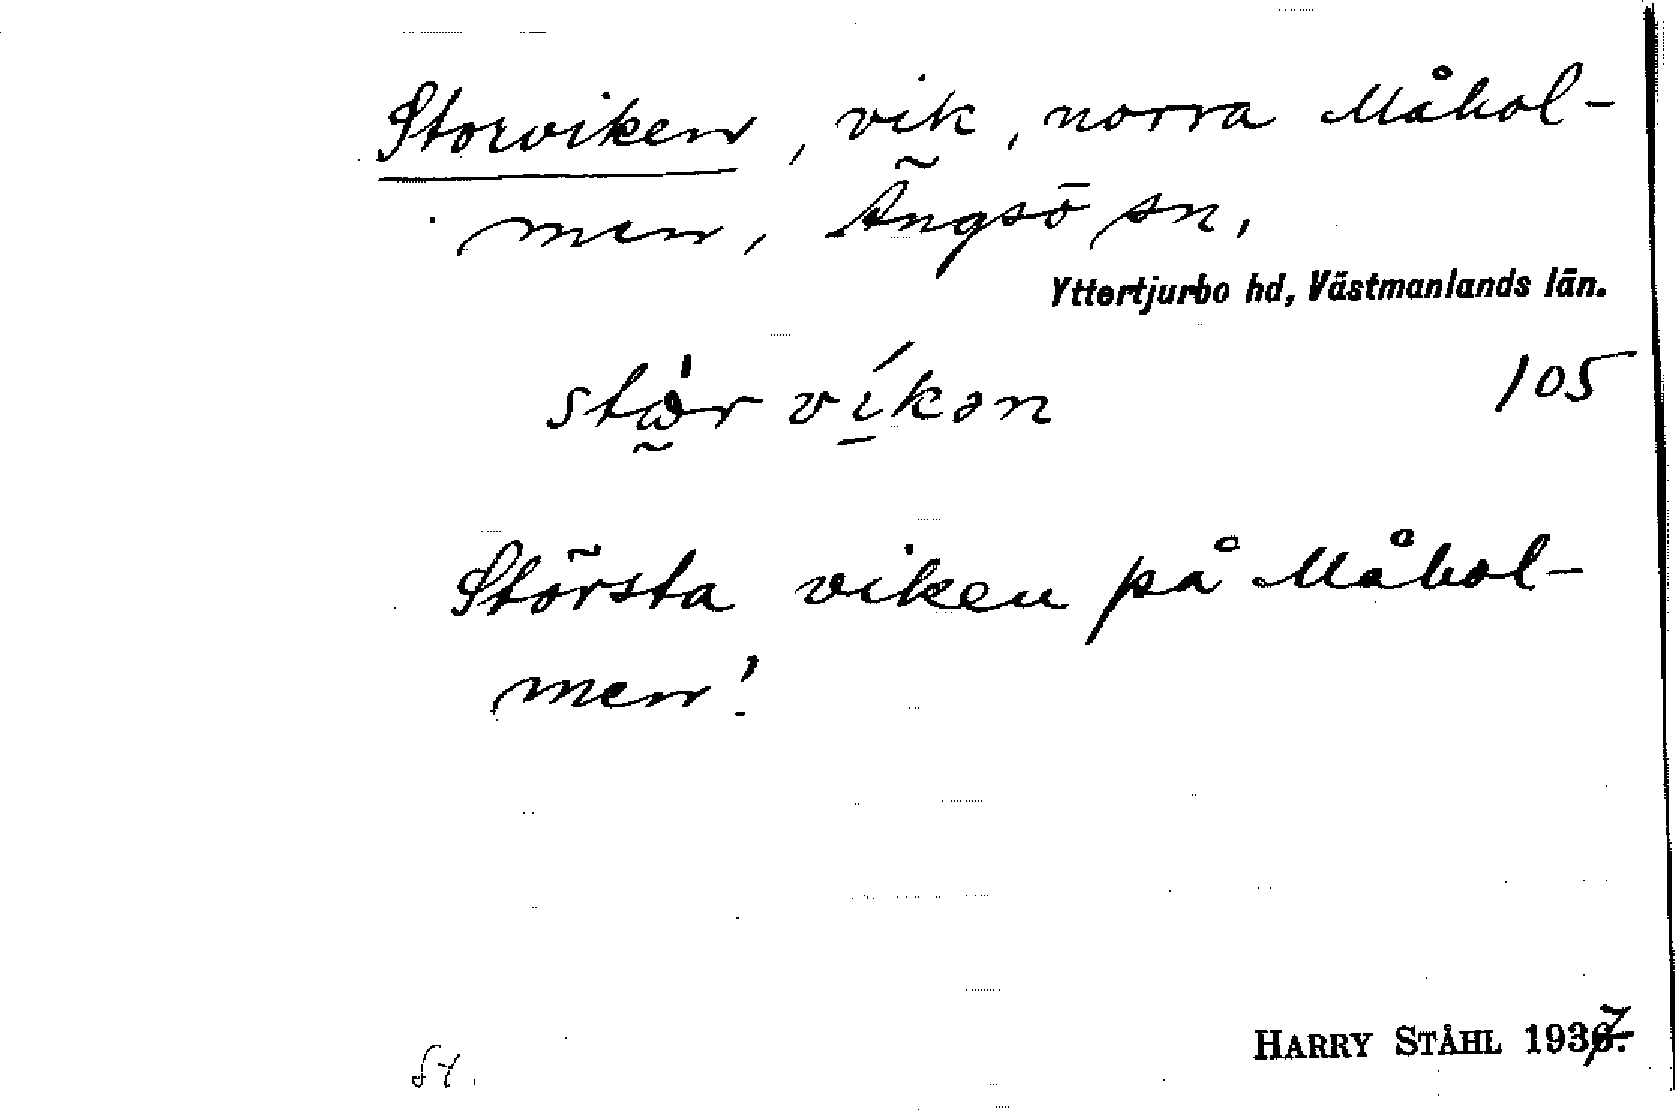 Storviken, vik, norra Måhol-
men, Ängsö sn,
Yttertjurbo hd, Västmanlands län.
105
Största viken på Måhol-
men!
HARRY STÅHL 1937.